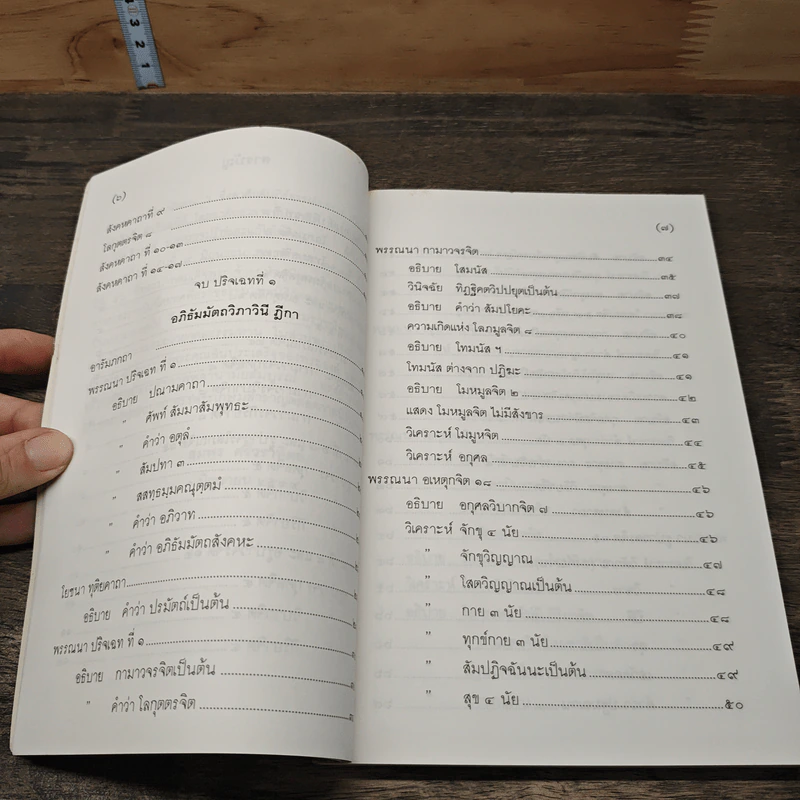 3
2
1
(๖)
สังคหคาถาที่ ๙
โลกุตตรจิต ๘
สังคหคาถา ที่ ๑๐-๑๓
สังคหคาถา ที่ ๑๔-๑๗
จบ ปริจเฉทที่ ๑
อภิธัมมัตถวิภาวินี ฎีกา
อารัมภกถา
พรรณนา ปริจเฉท ที่ ๑
อธิบาย ปณามคาถา
" ศัพท์ สัมมาสัมพุทธะ
" คำว่า อตุลํ
" สัมปทา ๓
" สสทฺธมฺมคณุตฺตมํ
" คำว่า อภิวาท
" คำว่า อภิธัมมัตถสังคหะ
โยชนา ทุติยคาถา
อธิบาย คำว่า ปรมัตถ์เป็นต้น
พรรณนา ปริจเฉท ที่ ๑
อธิบาย กามาวจรจิตเป็นต้น
" คำว่า โลกุตตรจิต
(๗)
พรรณนา กามาวจรจิต ๓๔
อธิบาย โสมนัส ๓๕
วินิจฉัย ทิฏฐิคตวิปปยุตเป็นต้น ๓๗
อธิบาย คำว่า สัมปโยคะ ๓๘
ความเกิดแห่ง โลภมูลจิต ๘ ๔๐
อธิบาย โทมนัส ฯ ๔๑
โทมนัส ต่างจาก ปฏิฆะ ๔๑
อธิบาย โมหมูลจิต ๒ ๔๒
แสดง โมหมูลจิต ไม่มีสังขาร ๔๓
วิเคราะห์ โมมูหจิต ๔๔
วิเคราะห์ อกุศล ๔๕
พรรณนา อเหตุกจิต ๑๘ ๔๖
อธิบาย อกุศลวิบากจิต ๗ ๔๖
วิเคราะห์ จักขุ ๔ นัย ๔๖
" จักขุวิญญาณ ๔๗
" โสตวิญญาณเป็นต้น ๔๘
" กาย ๓ นัย ๔๘
" ทุกข์กาย ๓ นัย ๔๙
" สัมปฏิจฉันนะเป็นต้น ๔๙
" สุข ๔ นัย ๕๐